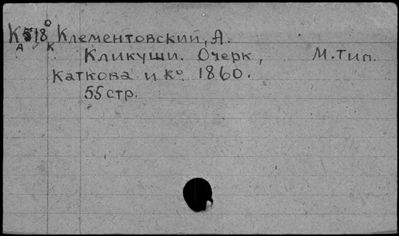 К518⁰ Клементовский, А.
А К
Кликуши. Очерк, М. Тип.
Каткова и К⁰ 1860.
55 стр.